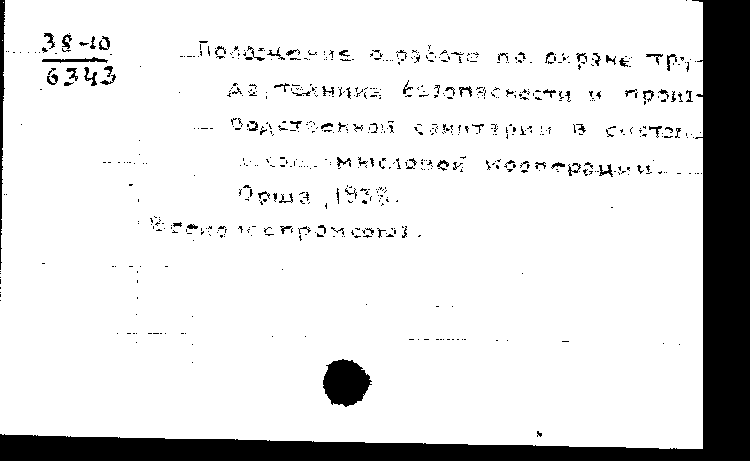 38-10
6343
Положение о работе по охране тру-
да, технике безопасности и произ-
водственной санитарии в систе
кооперации.
Орша, 1938.